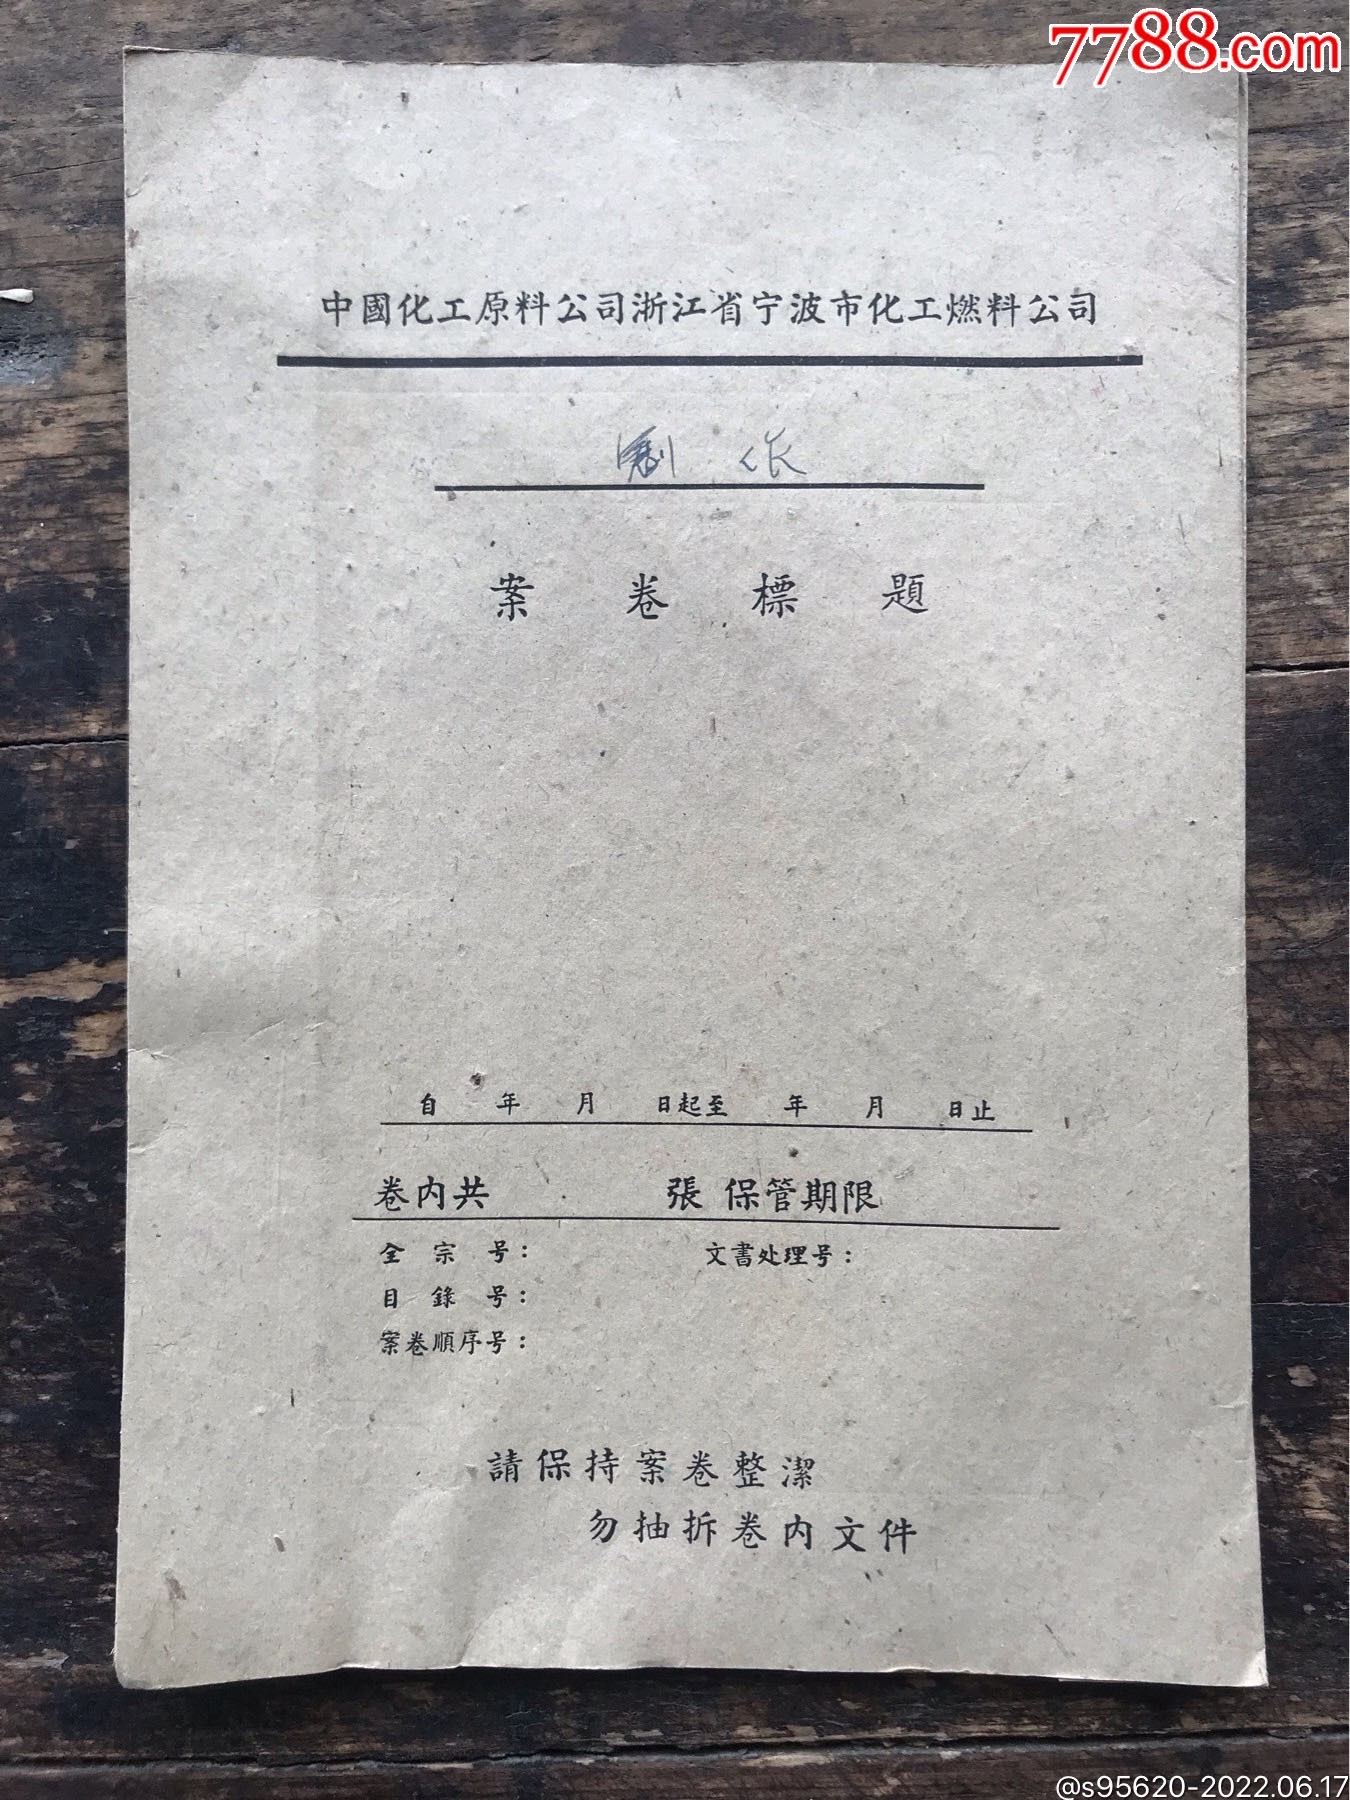 7788.com
中國化工原料公司浙江省宁波市化工燃料公司
案卷標題
自 年 月 日起至 年 月 日止
卷内共 張 保管期限
全宗号： 文書处理号：
目錄号：
案卷順序号：
請保持案卷整潔
勿抽拆卷内文件
@s95620-2022.06.17